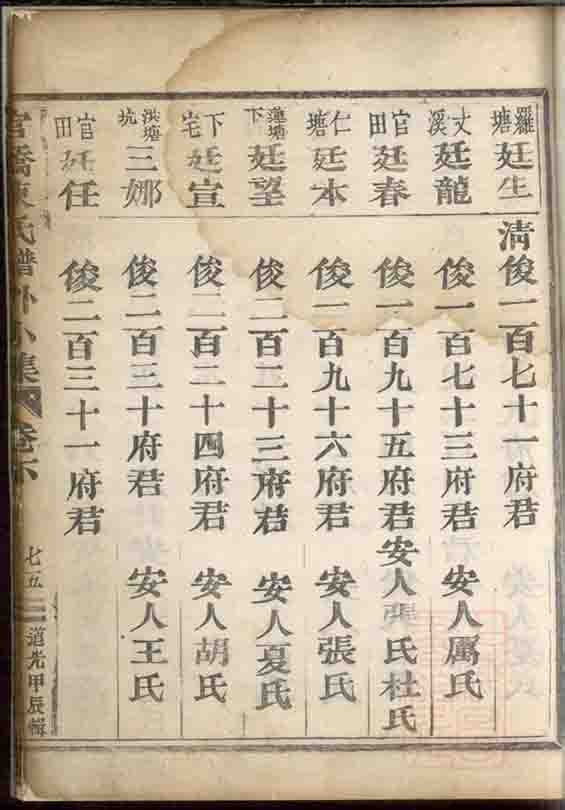 羅塘 廷生 清俊一百七十一府君
丈溪 廷龍 俊一百七十三府君 安人厲氏
官田 廷春 俊一百九十五府君 安人張氏杜氏
仁塘 廷本 俊一百九十六府君 安人張氏
蓮塘下 廷望 俊二百二十三府君 安人夏氏
下宅 廷宣 俊二百二十四府君 安人胡氏
洪塘坑 三娜 俊二百三十府君 安人王氏
官田 廷任 俊二百三十一府君
官橋陳氏譜外小集 卷 七五 道光甲辰輯